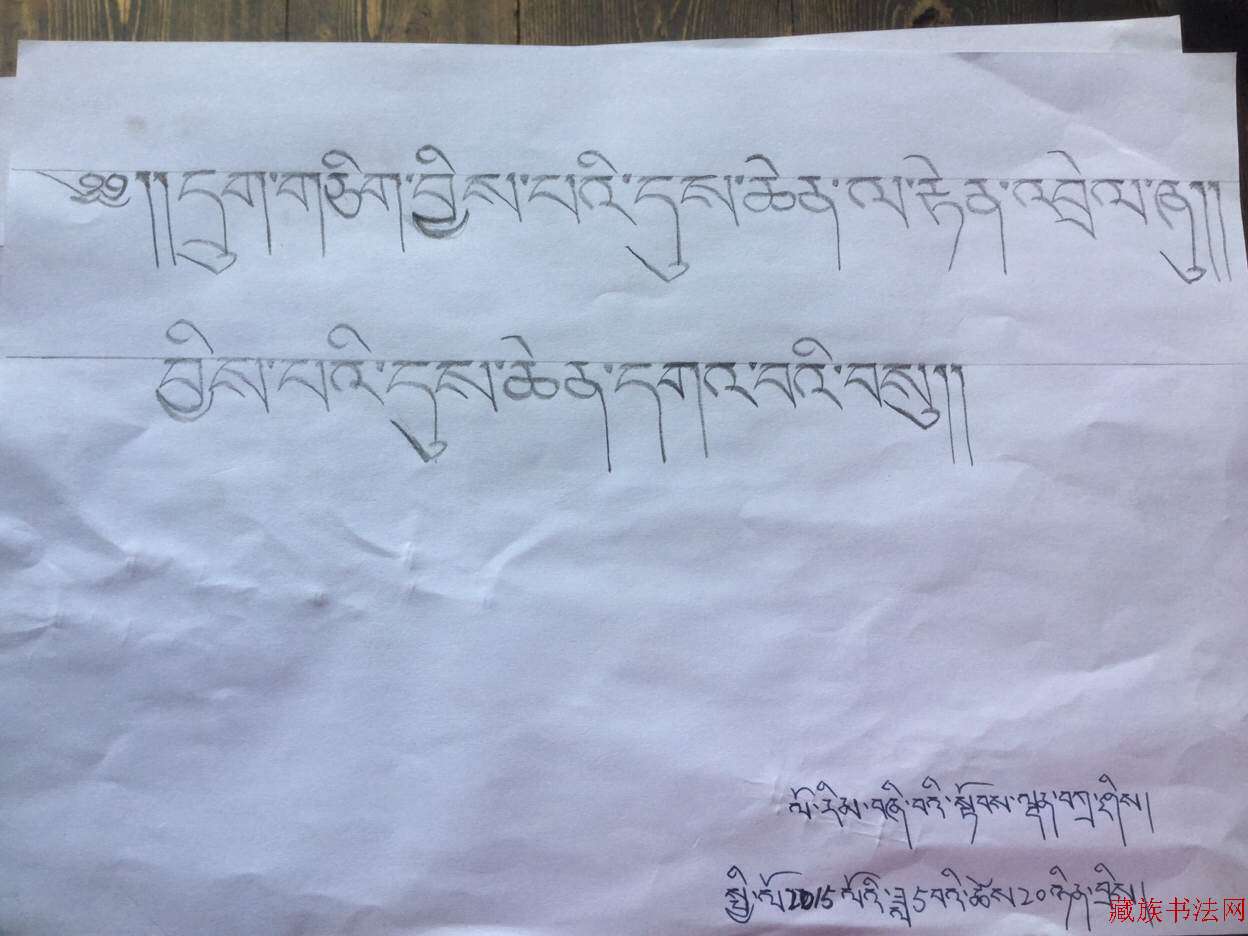 ༄༅།།དྲུག་གཅིག་བྱིས་པའི་དུས་ཆེན་ལ་རྟེན་འབྲེལ་ཞུ།།
བྱིས་པའི་དུས་ཆེན་དགའ་བའི་བསུ།།
ལོ་རིམ་བཞི་བའི་སྟོབས་ལྡན་བཀྲ་ཤིས།
སྤྱི་ལོ2015ལོའི་ཟླ5བའི་ཚེས20ཉིན་བྲིས།
藏族书法网